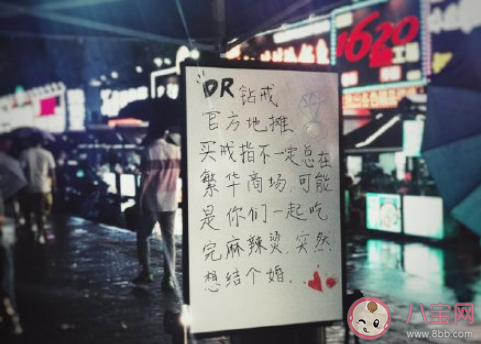 DR钻戒
官方地摊
买戒指不一定总在
繁华商场,可能
是你们一起吃
完麻辣烫,突然
想结个婚.
1620
八宝网
www.8bb.com